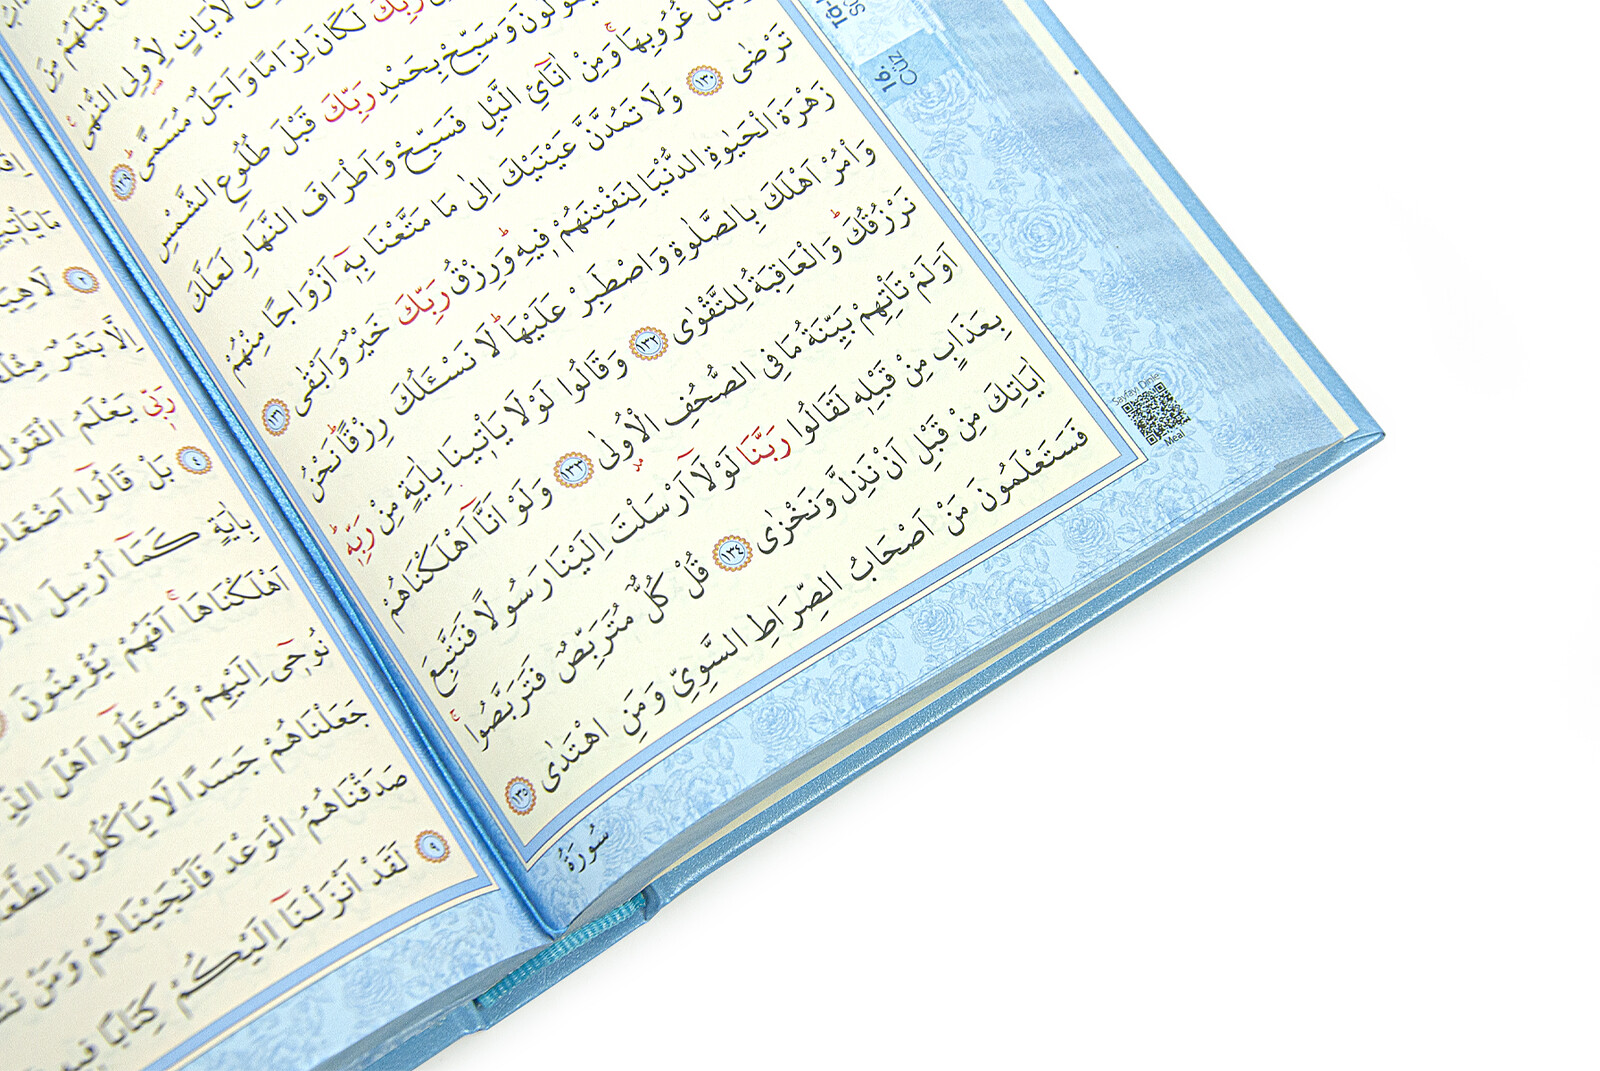 قَبْلَهُمْ مِنَ
لَاٰيَاتٍ لِاُولِي النُّهٰىۚ
رَبِّكَ لَكَانَ لِزَامًا وَاَجَلٌ مُسَمًّىۜ ﴿١٢٩﴾
وَسَبِّحْ بِحَمْدِ رَبِّكَ قَبْلَ طُلُوعِ الشَّمْسِ
غُرُوبِهَاۚ وَمِنْ اٰنَٓائِ الَّيْلِ فَسَبِّحْ وَاَطْرَافَ النَّهَارِ لَعَلَّكَ
تَرْضٰى ﴿١٣٠﴾ وَلَا تَمُدَّنَّ عَيْنَيْكَ اِلٰى مَا مَتَّعْنَا بِهٖٓ اَزْوَاجًا مِنْهُمْ
زَهْرَةَ الْحَيٰوةِ الدُّنْيَا لِنَفْتِنَهُمْ فِيهِۜ وَرِزْقُ رَبِّكَ خَيْرٌ وَاَبْقٰى ﴿١٣١﴾
وَأْمُرْ اَهْلَكَ بِالصَّلٰوةِ وَاصْطَبِرْ عَلَيْهَاۜ لَا نَسْـَٔلُكَ رِزْقًاۜ نَحْنُ
نَرْزُقُكَۜ وَالْعَاقِبَةُ لِلتَّقْوٰى ﴿١٣٢﴾ وَقَالُوا لَوْلَا يَأْتِينَا بِاٰيَةٍ مِنْ رَبِّهٖۜ
اَوَلَمْ تَأْتِهِمْ بَيِّنَةُ مَا فِي الصُّحُفِ الْاُولٰى ﴿١٣٣﴾ وَلَوْ اَنَّٓا اَهْلَكْنَاهُمْ
بِعَذَابٍ مِنْ قَبْلِهٖ لَقَالُوا رَبَّنَا لَوْلَٓا اَرْسَلْتَ اِلَيْنَا رَسُولًا فَنَتَّبِعَ
اٰيَاتِكَ مِنْ قَبْلِ اَنْ نَذِلَّ وَنَخْزٰى ﴿١٣٤﴾ قُلْ كُلٌّ مُتَرَبِّصٌ فَتَرَبَّصُواۚ
فَسَتَعْلَمُونَ مَنْ اَصْحَابُ الصِّرَاطِ السَّوِيِّ وَمَنِ اهْتَدٰى ﴿١٣٥﴾
سُورَةُ
16.
Cüz
Sayfayı Dinle
Meal
مَا يَأْتِيهِمْ
﴿٢﴾ لَاهِيَةً
اِلَّا بَشَرٌ مِثْلُكُمْ
رَبّٖي يَعْلَمُ الْقَوْلَ
﴿٤﴾ بَلْ قَالُٓوا اَضْغَاثُ
بِاٰيَةٍ كَمَٓا اُرْسِلَ
اَهْلَكْنَاهَاۚ اَفَهُمْ يُؤْمِنُونَ
نُوحٖٓي اِلَيْهِمْ فَسْـَٔلُٓوا اَهْلَ
جَعَلْنَاهُمْ جَسَدًا لَا يَأْكُلُونَ الطَّعَامَ
صَدَقْنَاهُمُ الْوَعْدَ فَاَنْجَيْنَاهُمْ وَمَنْ
﴿٩﴾ لَقَدْ اَنْزَلْنَٓا اِلَيْكُمْ كِتَابًا فِيهِ